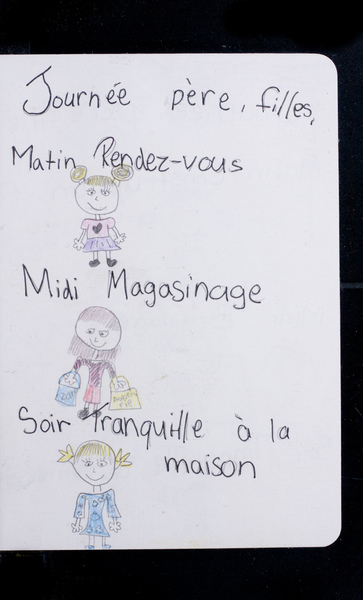 Journée père, filles,
Matin Rendez-vous
Midi Magasinage
Soir Tranquille à la
maison